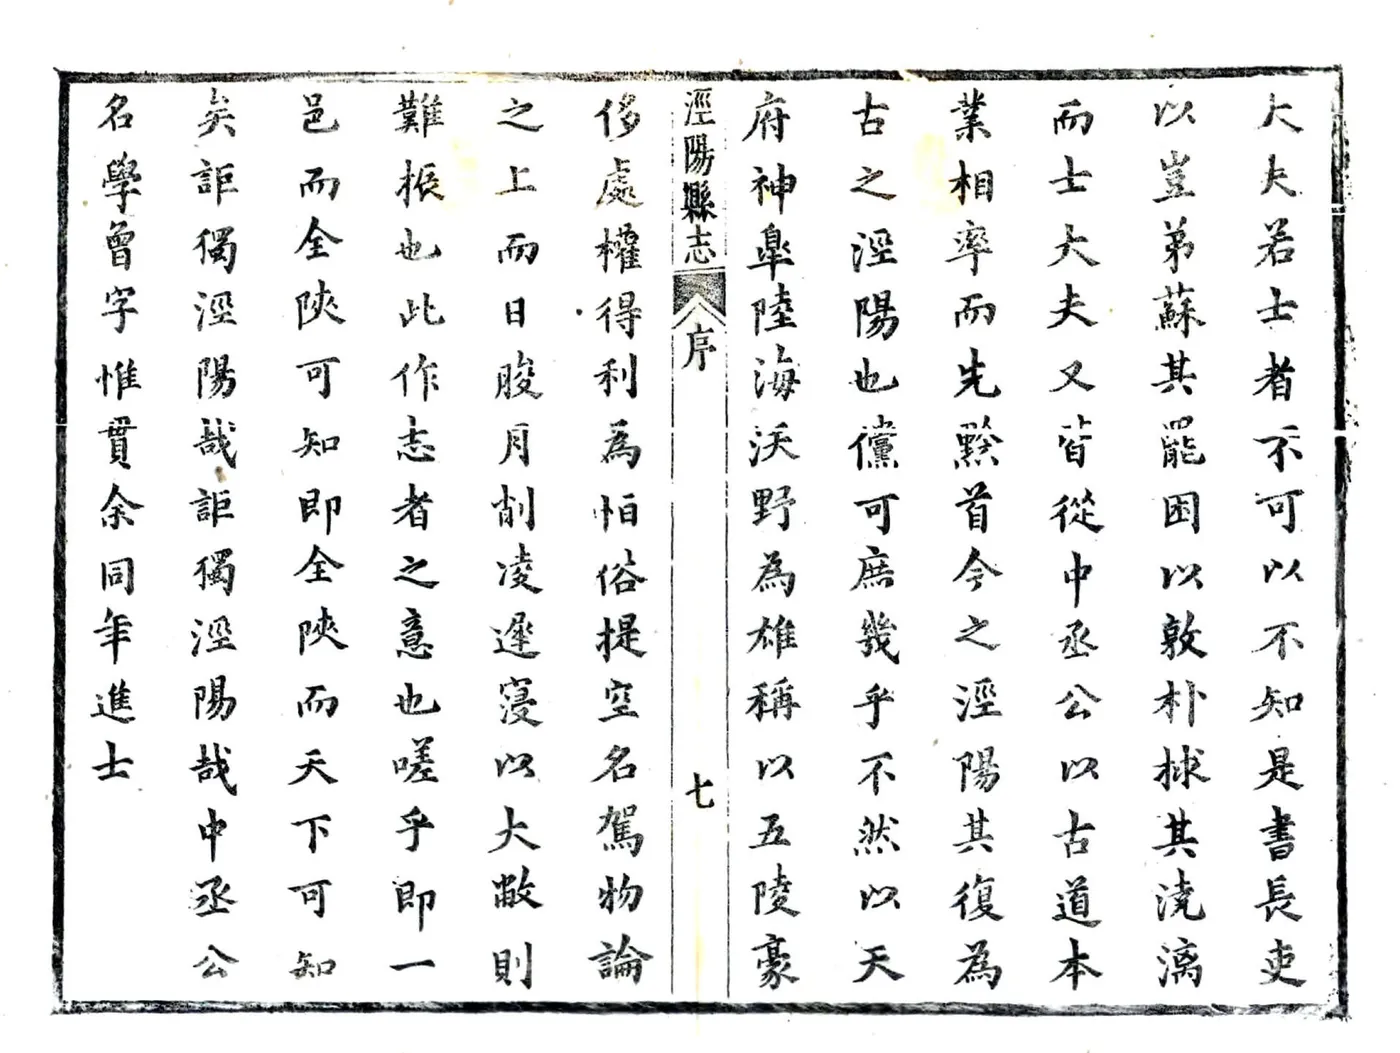 大夫若士者不可以不知是書長吏
以豈弟蘇其罷困以敦朴捄其澆漓
而士大夫又皆從中丞公以古道本
業相率而先黔首今之涇陽其復為
古之涇陽也儻可庶幾乎不然以天
府神臯陸海沃野為雄稱以五陵豪
涇陽縣志
序
七
侈處權得利為怕俗提空名駕物論
之上而日朘月削凌遲寖以大敝則
難振也此作志者之意也嗟乎即一
邑而全陝可知即全陝而天下可知
矣詎獨涇陽哉詎獨涇陽哉中丞公
名學曾字惟貫余同年進士